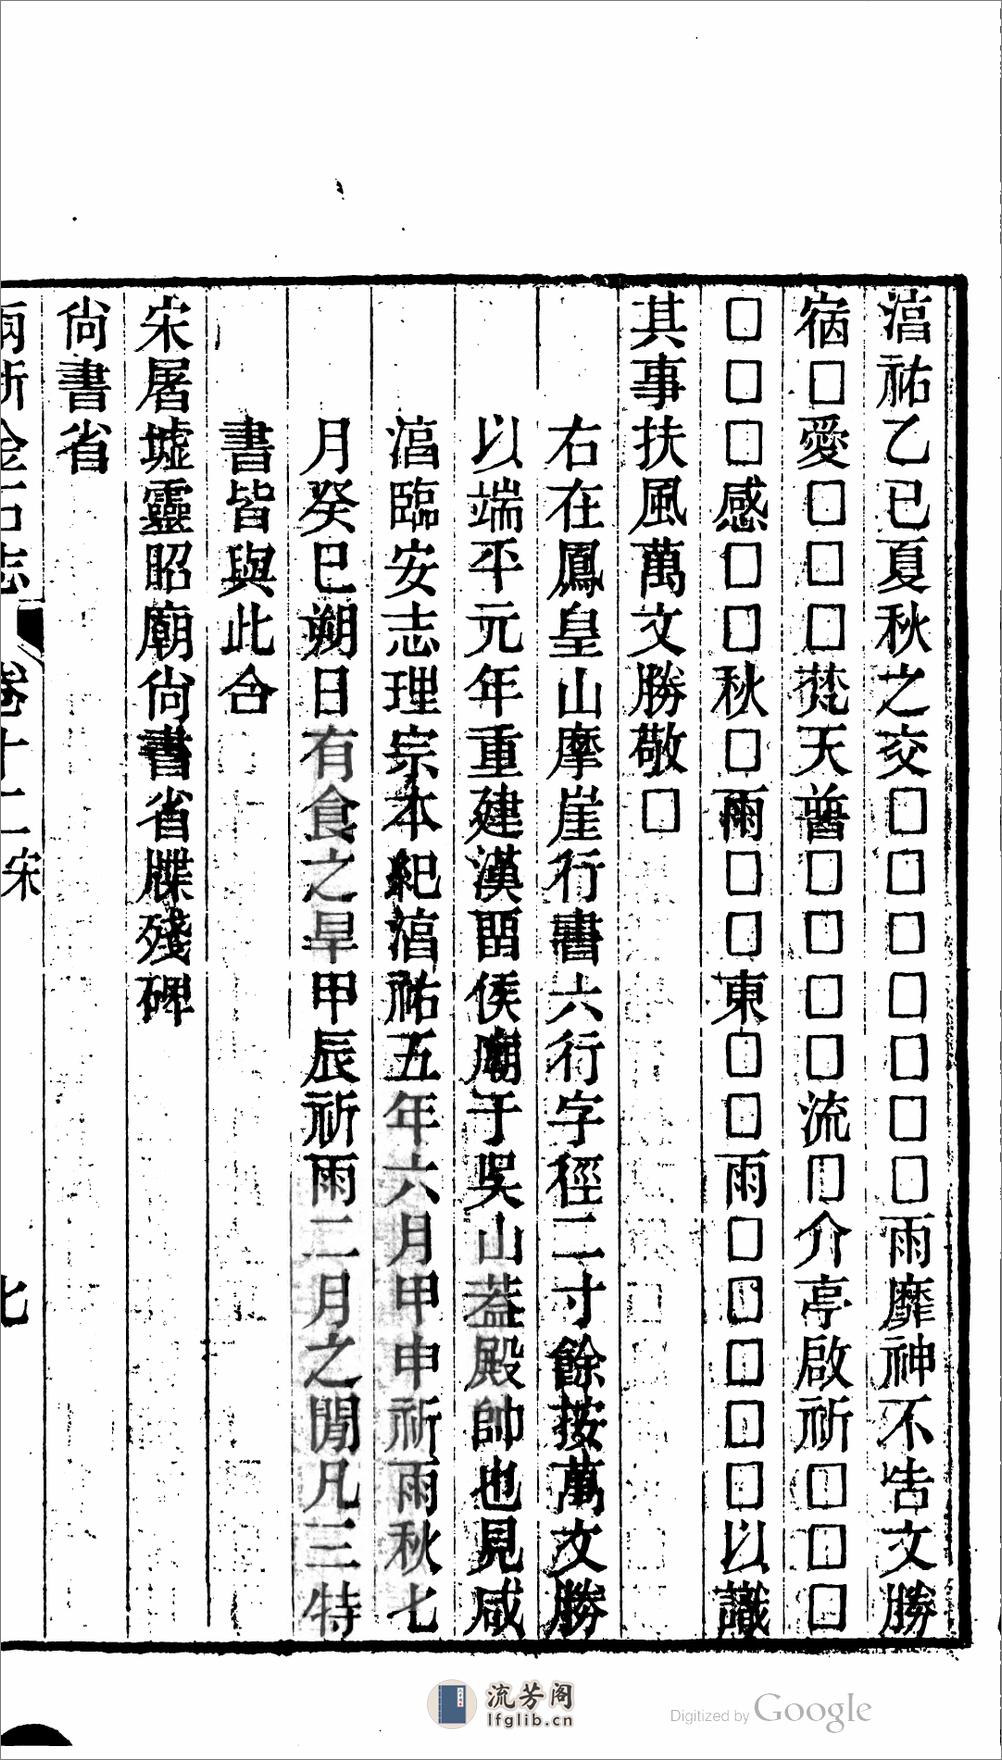 湻祐乙巳夏秋之交□□□□□□□雨靡神不吿文勝
宿□愛□□□焚天普□□□□流□介亭啟祈□□□
□□□感□□秋□雨□□東□□雨□□□□□以識
其事扶風萬文勝敬□
右在鳳皇山摩崖行書六行字徑二寸餘按萬文勝
以端平元年重建漢酉侯廟于吳山葢殿帥也見咸
湻臨安志理宗本紀湻祐五年六月甲申祈雨秋七
月癸巳朔日有食之旱甲辰祈雨二月之閒凡三特
書皆與此合
宋屠墟靈昭廟尙書省牒殘碑
尙書省
兩浙金石志 卷十二 宋 七
流芳阁
lfglib.cn
Digitized by Google